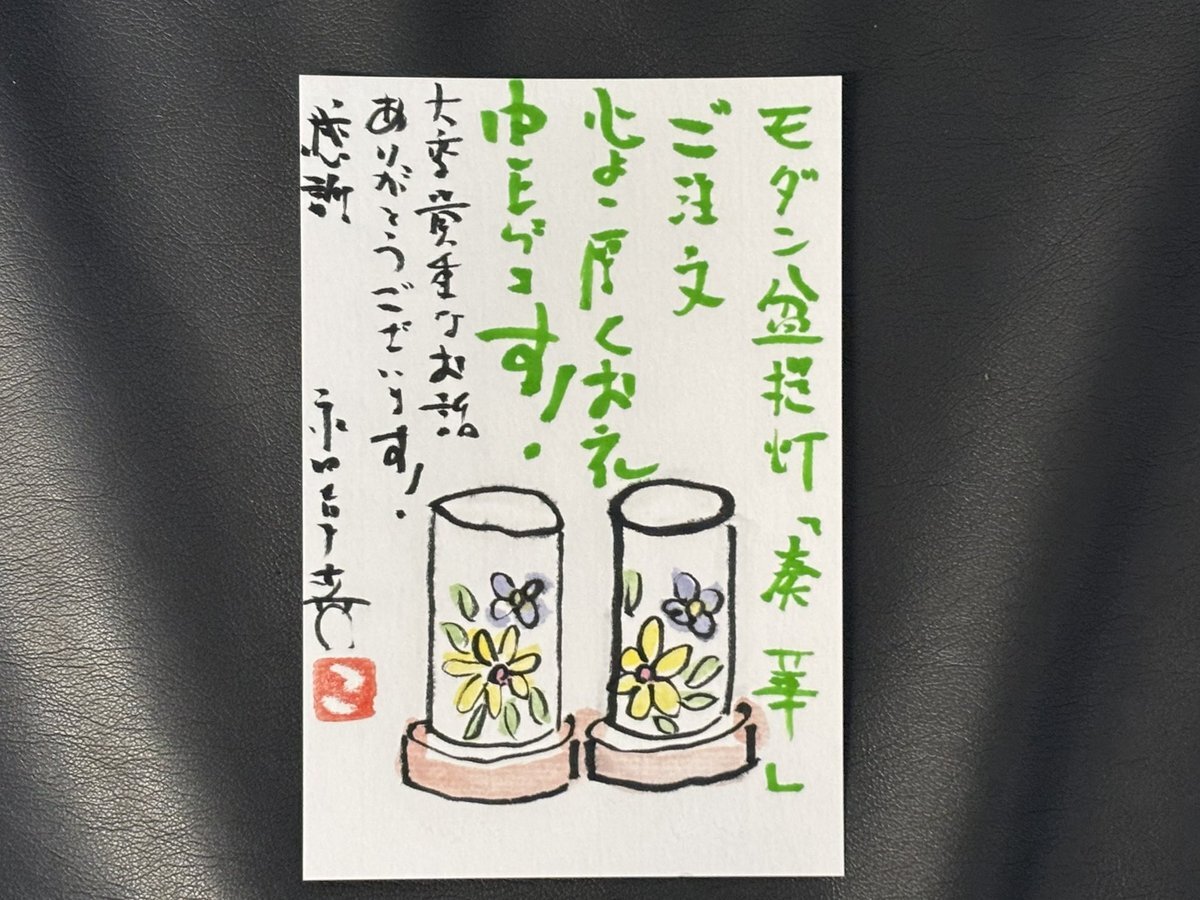 モダン盆提灯「奏華」
ご注文
心より厚くお礼
申し上げます。
大変貴重なお話
ありがとうございます。
感謝
こ